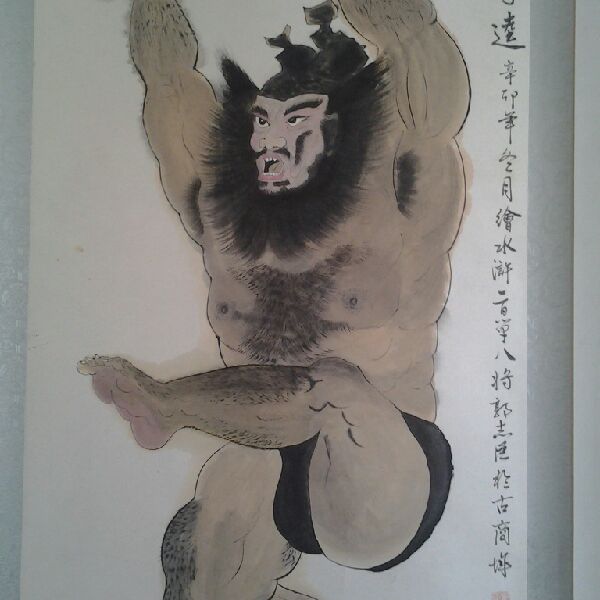 逵 辛卯年冬月繪水滸一百單八將郭志臣於古商城